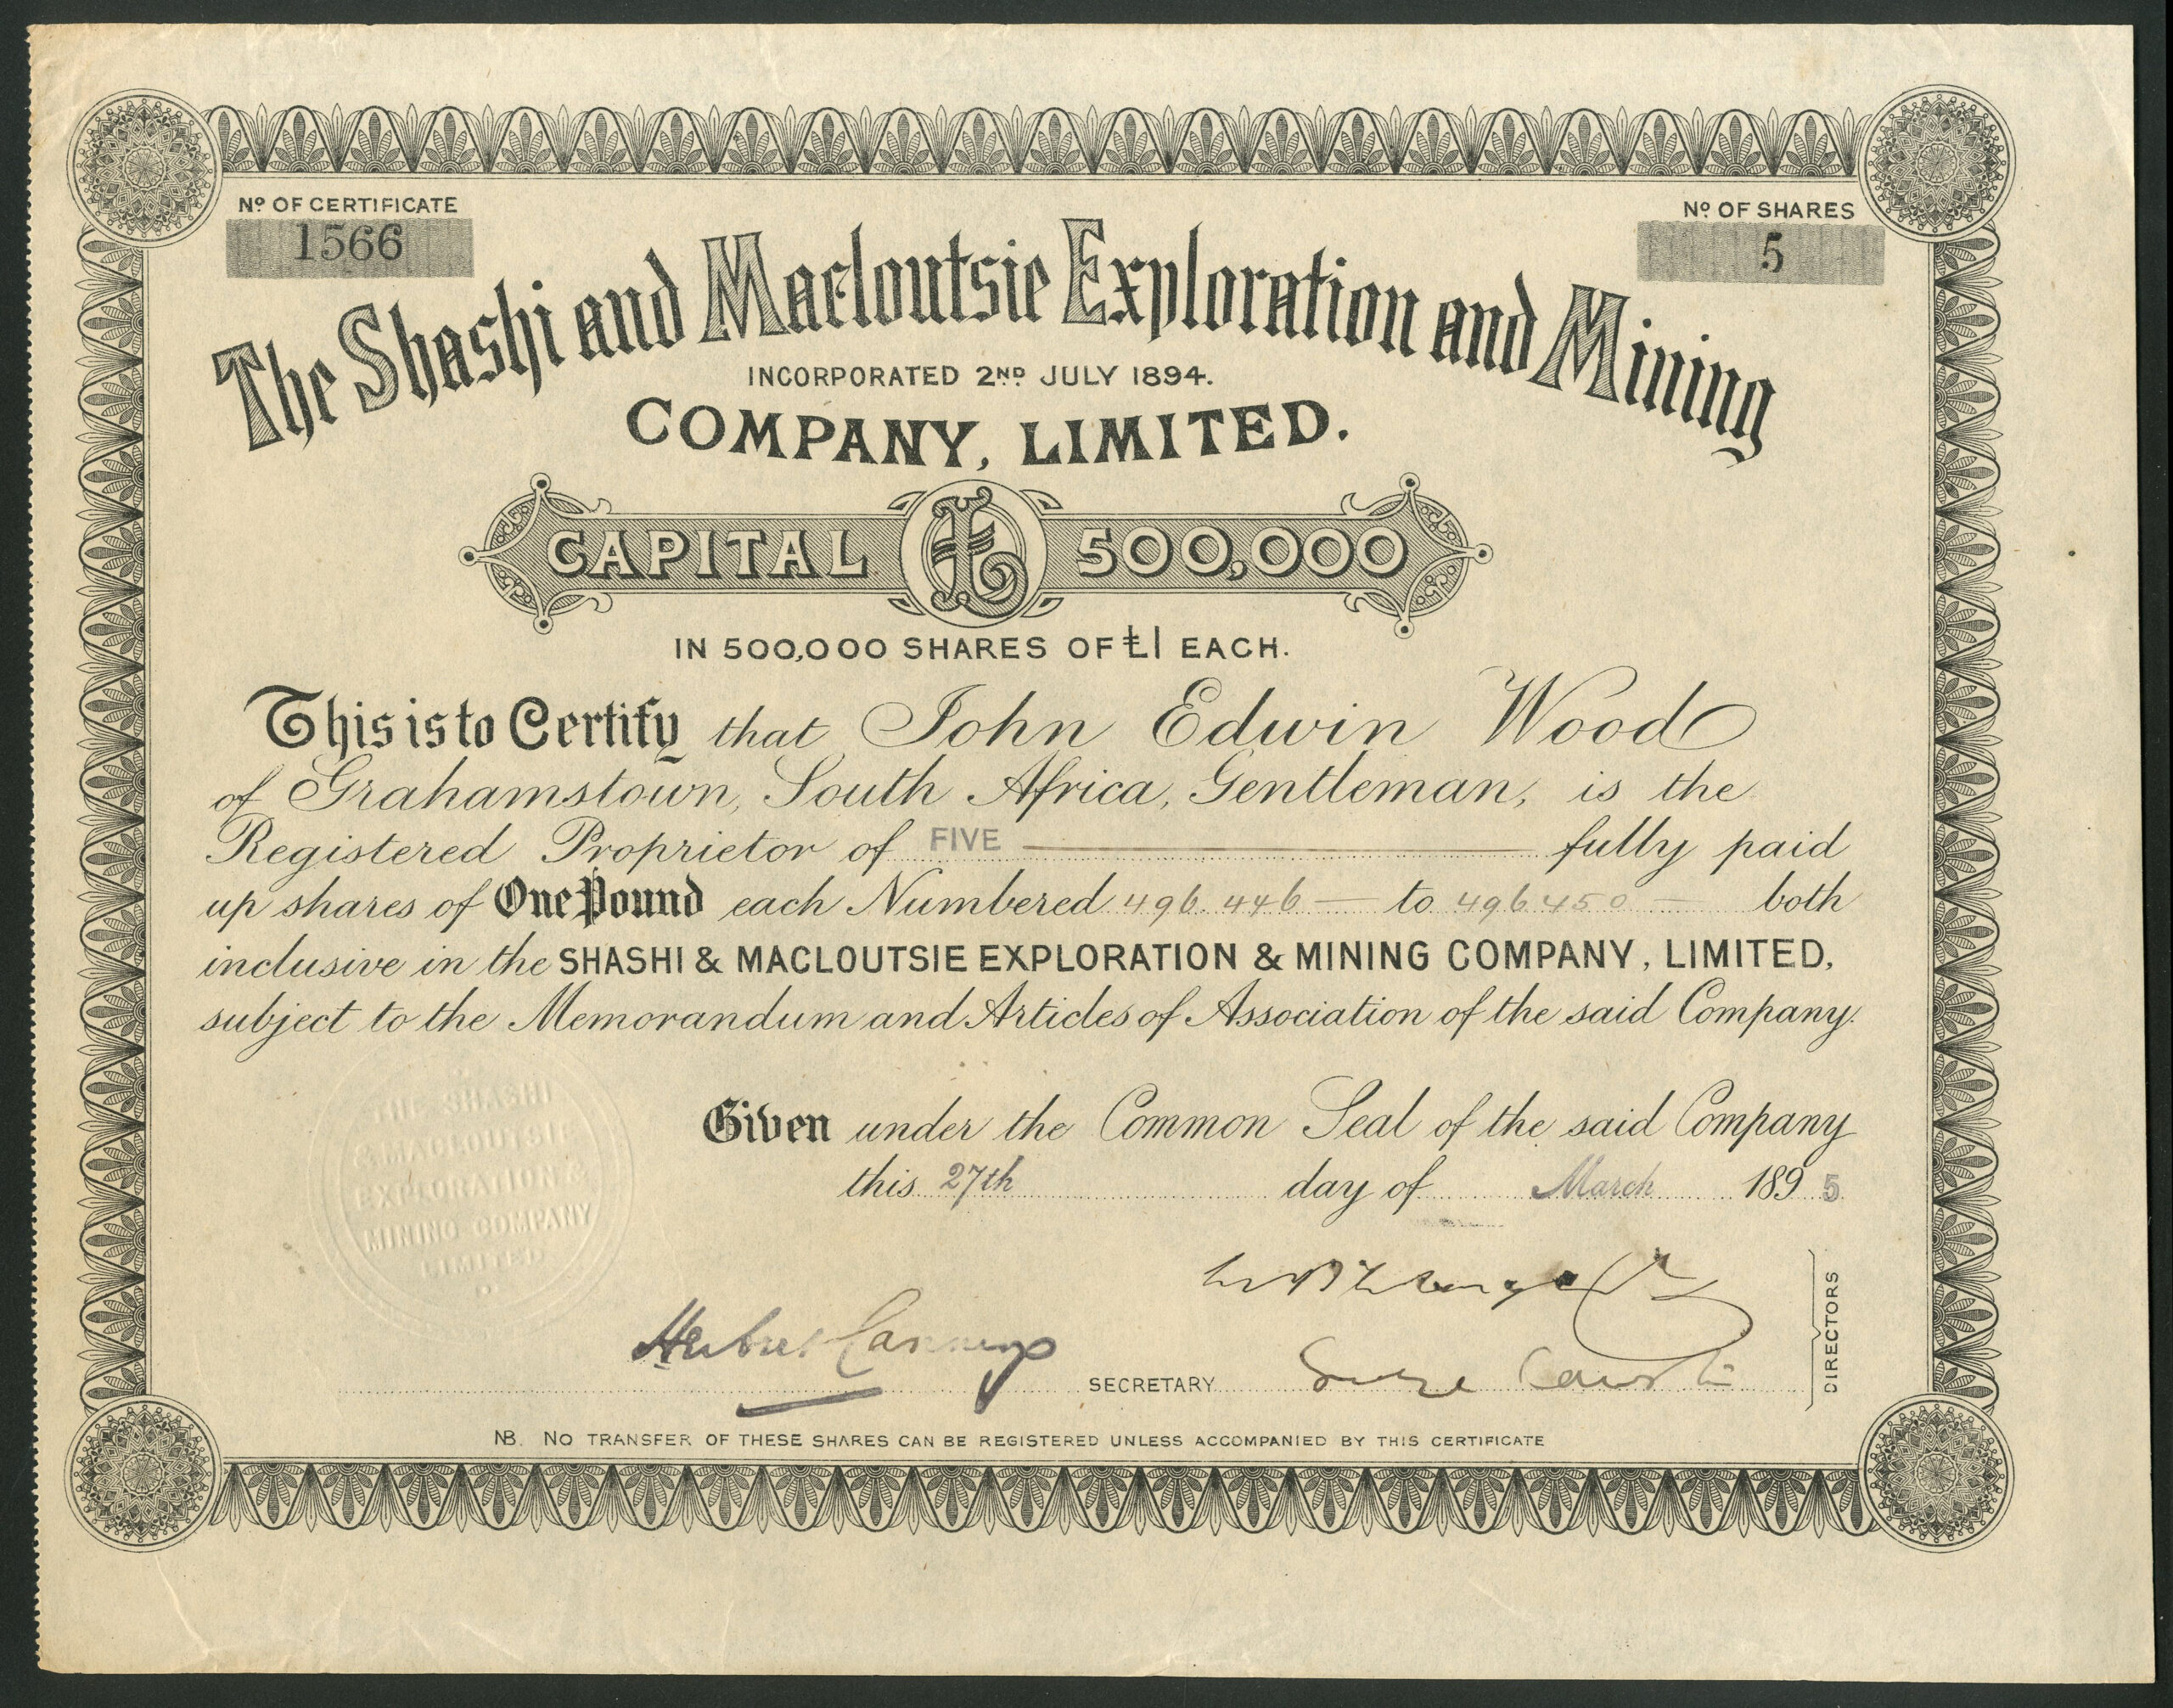 Nº OF CERTIFICATE
1566
Nº OF SHARES
5
The Shashi and Macloutsie Exploration and Mining
INCORPORATED 2ND JULY 1894.
COMPANY, LIMITED.
CAPITAL £ 500,000
IN 500,000 SHARES OF £1 EACH.
This is to Certify that John Edwin Wood
of Grahamstown, South Africa, Gentleman, is the
Registered Proprietor of FIVE fully paid
up shares of One Pound each Numbered 496.446 — to 496450 — both
inclusive in the SHASHI & MACLOUTSIE EXPLORATION & MINING COMPANY, LIMITED,
subject to the Memorandum and Articles of Association of the said Company.
Given under the Common Seal of the said Company
this 27th day of March 1895
THE SHASHI
& MACLOUTSIE
EXPLORATION &
MINING COMPANY
LIMITED
Herbert Canning
SECRETARY
DIRECTORS
NB. NO TRANSFER OF THESE SHARES CAN BE REGISTERED UNLESS ACCOMPANIED BY THIS CERTIFICATE